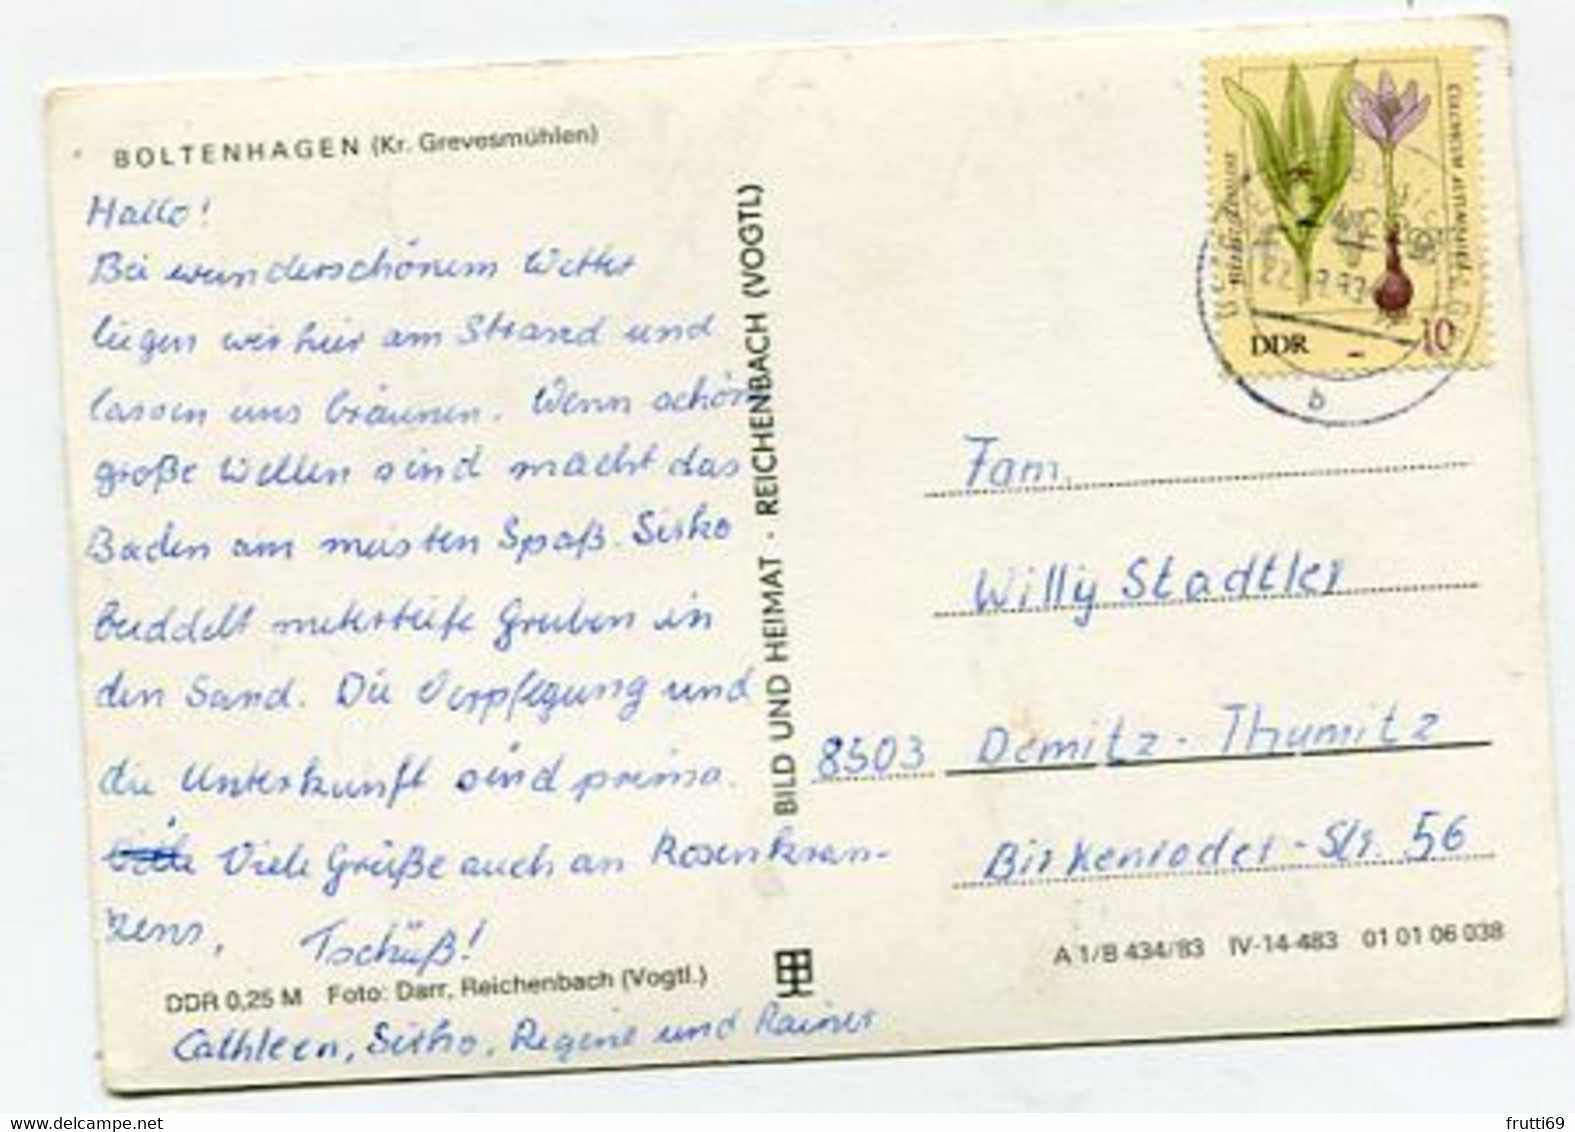 BOLTENHAGEN (Kr. Grevesmühlen)
Hallo!
Bei wunderschönem Wetter
liegen wir hier am Strand und
lassen uns bräunen. Wenn schön
große Wellen sind macht das
Baden am meisten Spaß. Sirko
buddelt metertiefe Gruben in
den Sand. Die Verpflegung und
die Unterkunft sind prima.
Viele Grüße auch an Rosenkran-
zens, Tschüß!
DDR 0,25 M Foto: Darr, Reichenbach (Vogtl.)
Cathleen, Sirko, Regine und Rainer
BILD UND HEIMAT · REICHENBACH (VOGTL)
Herbstzeitlose
COLCHICUM AUTUMNALE L.
DDR 10
b
Fam.
Willy Stadtler
8503 Demitz-Thumitz
Birkenroder-Str. 56
A 1/B 434/83 IV-14-483 01 01 06 038
delcampe.net
frutti69